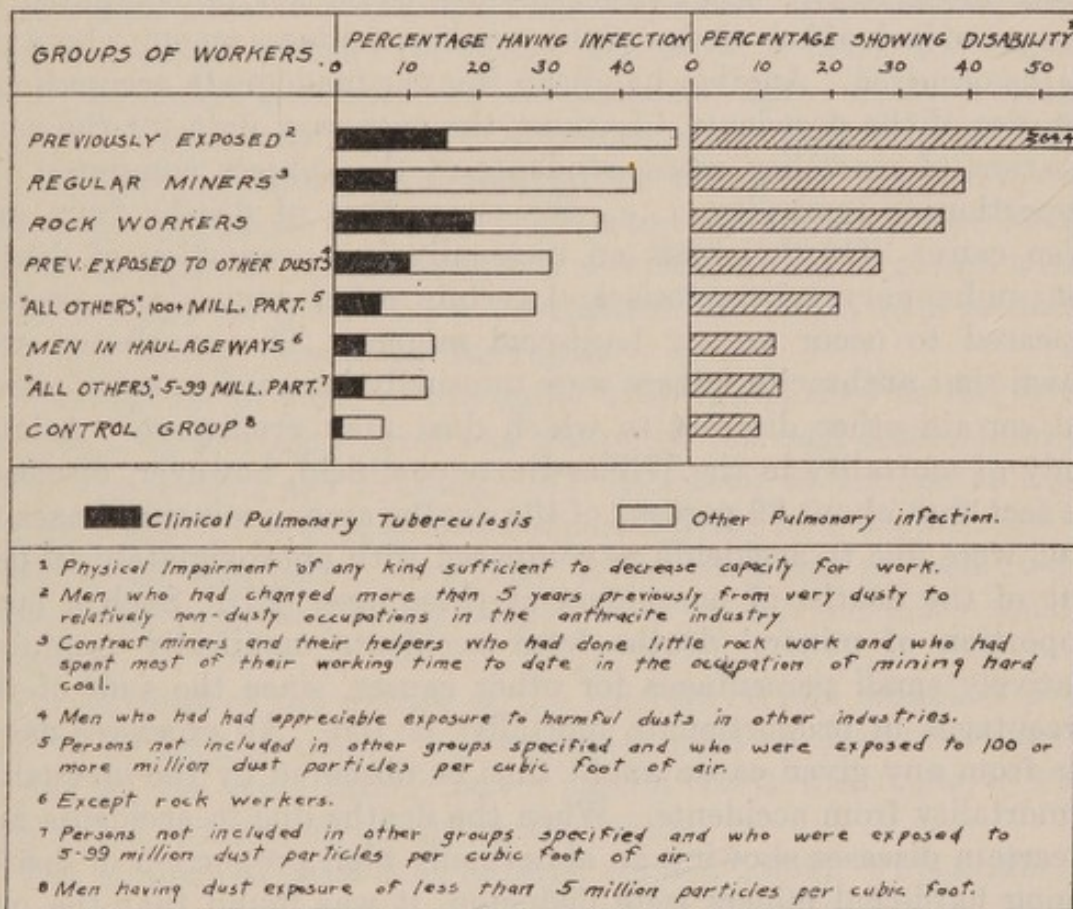 GROUPS OF WORKERS. PERCENTAGE HAVING INFECTION PERCENTAGE SHOWING DISABILITY 1
0 10 20 30 40 0 10 20 30 40 50
PREVIOUSLY EXPOSED 2 64.4
REGULAR MINERS 3
ROCK WORKERS
PREV. EXPOSED TO OTHER DUSTS 4
"ALL OTHERS", 100+ MILL. PART. 5
MEN IN HAULAGEWAYS 6
"ALL OTHERS", 5-99 MILL. PART. 7
CONTROL GROUP 8
Clinical Pulmonary Tuberculosis Other Pulmonary infection.
1 Physical Impairment of any kind sufficient to decrease capacity for work.
2 Men who had changed more than 5 years previously from very dusty to
relatively non-dusty occupations in the anthracite industry
3 Contract miners and their helpers who had done little rock work and who had
spent most of their working time to date in the occupation of mining hard
coal.
4 Men who had had appreciable exposure to harmful dusts in other industries.
5 Persons not included in other groups specified and who were exposed to 100 or
more million dust particles per cubic foot of air.
6 Except rock workers.
7 Persons not included in other groups specified and who were exposed to
5-99 million dust particles per cubic foot of air.
8 Men having dust exposure of less than 5 million particles per cubic foot.